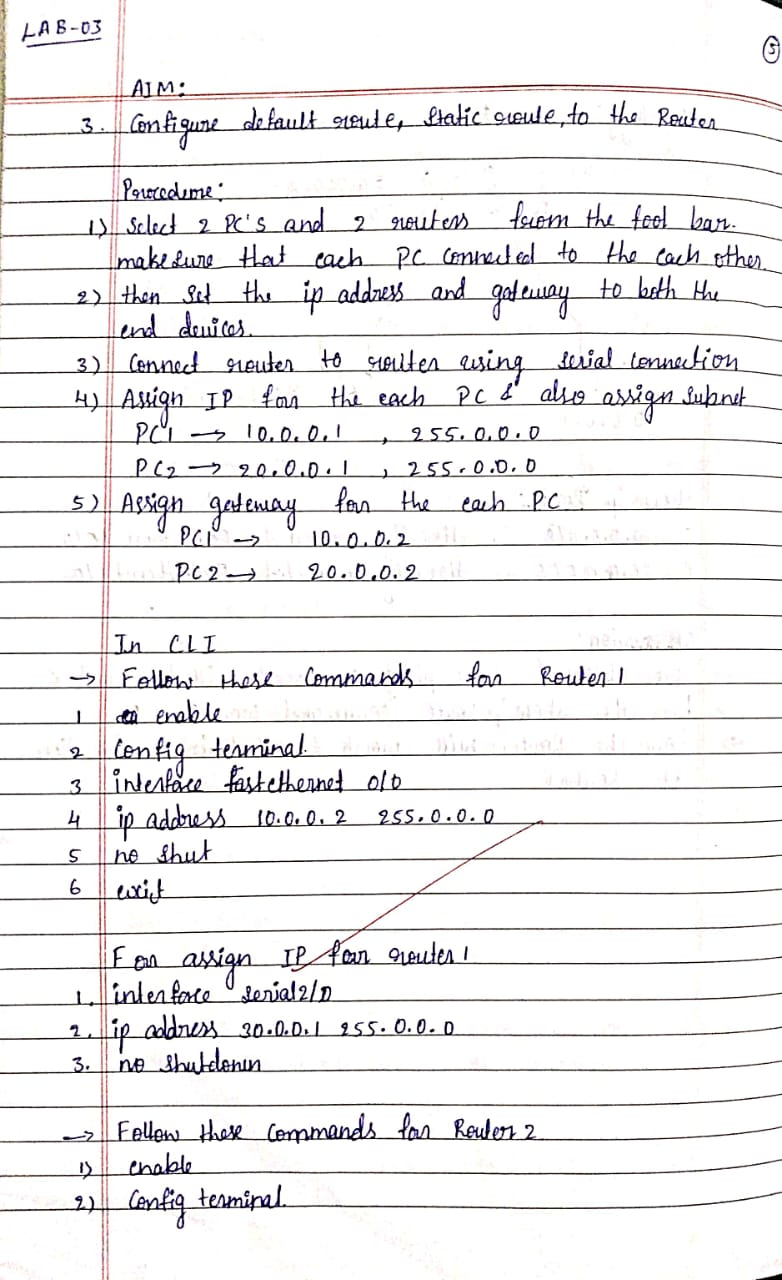 LAB-03
5
AIM:
3. Configure default route, static route, to the Router
Procedure:
1) Select 2 PC's and 2 routers from the tool bar.
make sure that each PC connected to the each other
2) then set the ip address and gateway to both the
end devices.
3) Connect router to router using serial connection
4) Assign IP for the each PC & also assign subnet
PC1 → 10.0.0.1 , 255.0.0.0
PC2 → 20.0.0.1 , 255.0.0.0
5) Assign gateway for the each PC
PC1 → 10.0.0.2
PC2 → 20.0.0.2
In CLI
→ Follow these Commands for Router 1
1 enable
2 Config terminal.
3 interface fastethernet 0/0
4 ip address 10.0.0.2 255.0.0.0
5 no shut
6 exit
For assign IP for router 1
1. interface serial2/0
2. ip address 30.0.0.1 255.0.0.0
3. no shutdown
→ Follow these Commands for Router 2
1) enable
2) Config terminal.